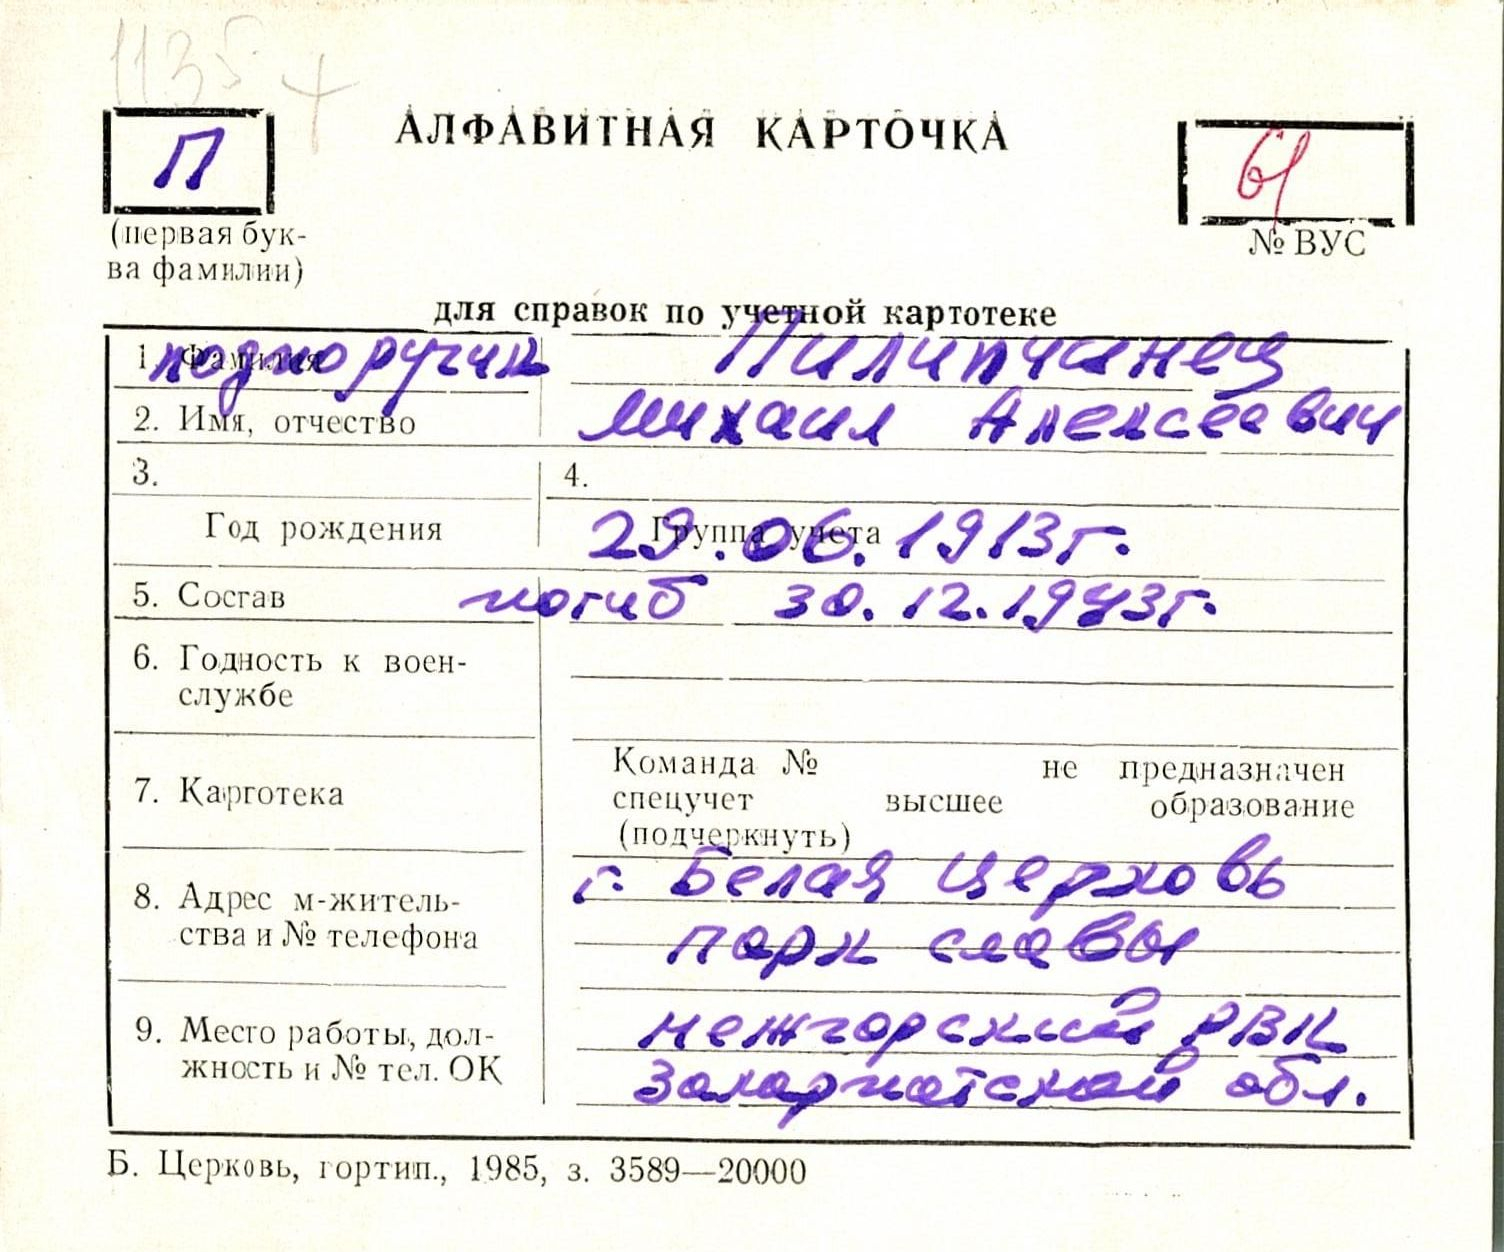 1135 +
АЛФАВИТНАЯ КАРТОЧКА
П
61
(первая бук-
ва фамилии)
№ ВУС
для справок по учетной картотеке
1. Фамилия подпоручик Пилипчинец
2. Имя, отчество Михаил Алексеевич
3. 4.
Год рождения Группа учета 29.06.1913г.
5. Состав погиб 30.12.1943г.
6. Годность к воен-
службе
Команда № не предназначен
7. Картотека спецучет высшее образование
(подчеркнуть)
8. Адрес м-житель-
ства и № телефона
г. Белая Церковь
парк славы
9. Место работы, дол-
жность и № тел. ОК
нежгорский РВК
Закарпатской обл.
Б. Церковь, гортип., 1985, з. 3589—20000